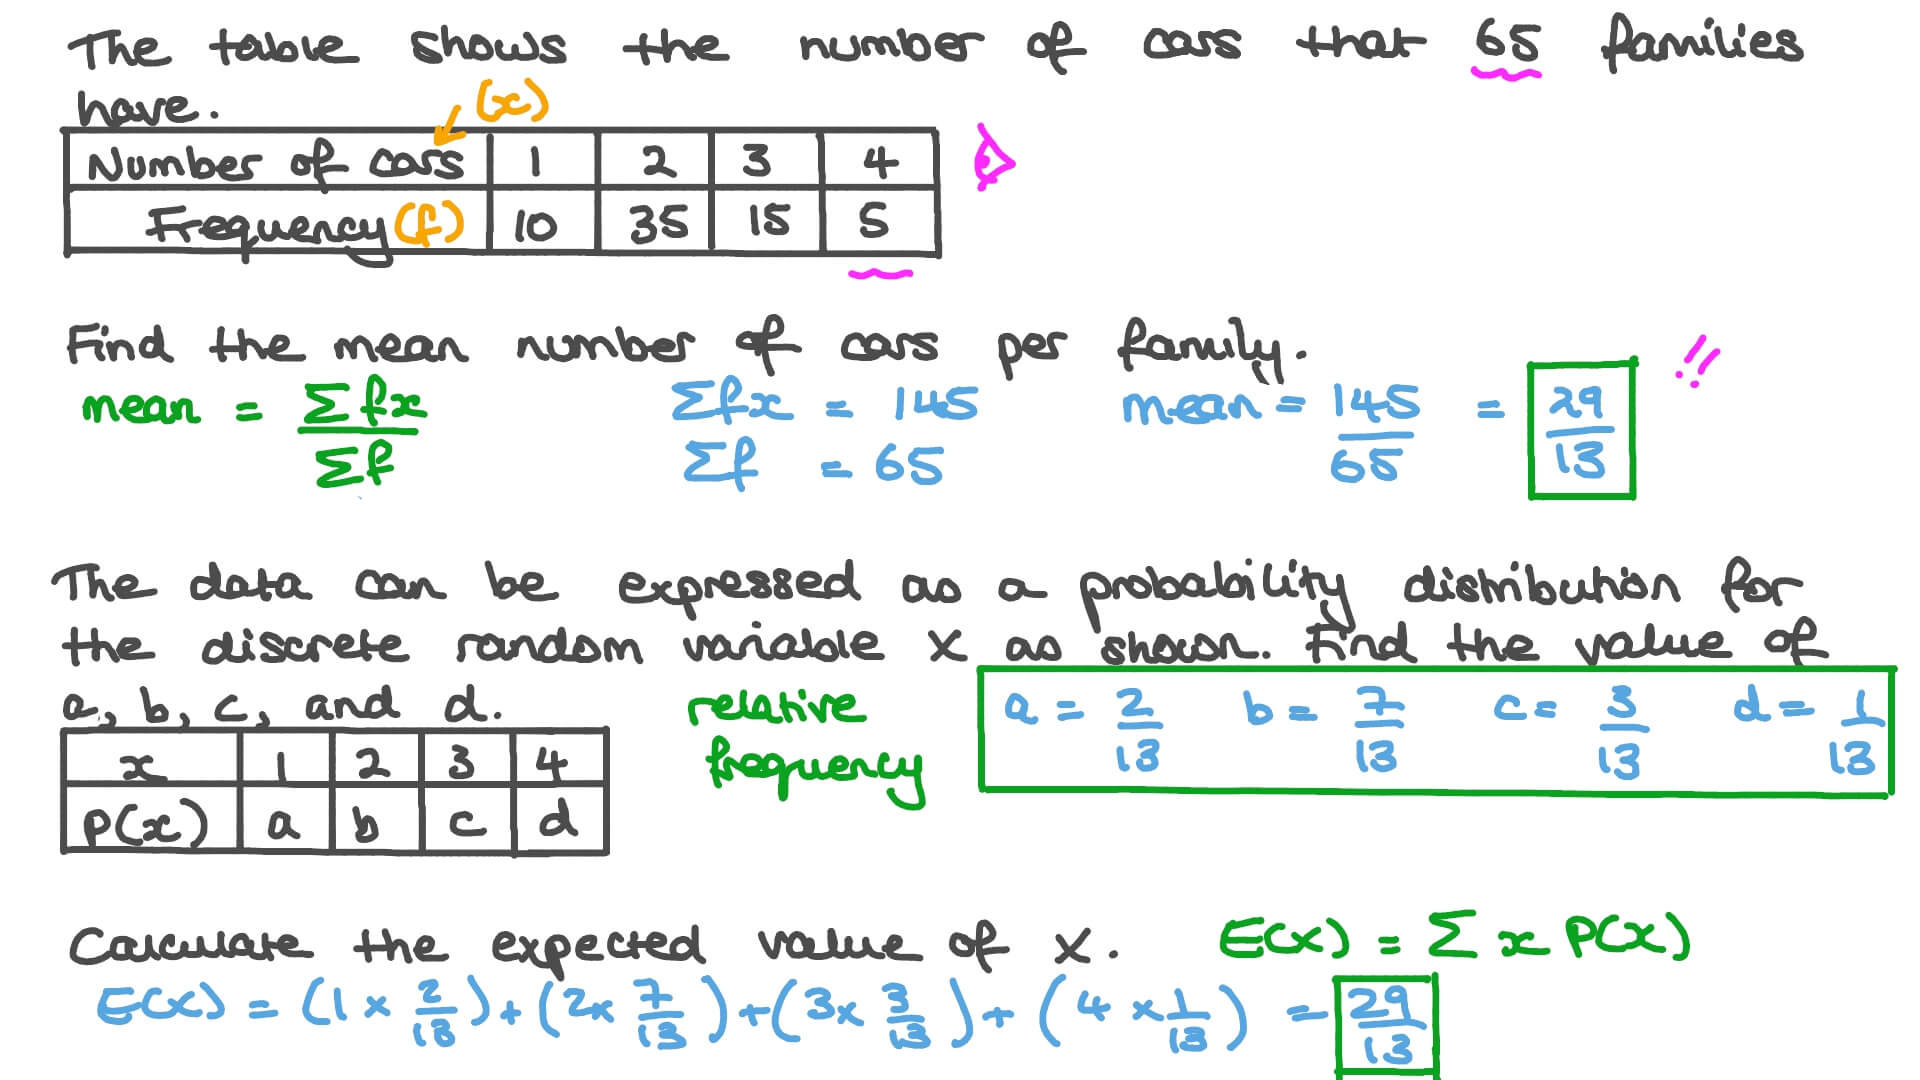 The table shows the number of cars that 65 families
have. (x)
Number of cars 1 2 3 4
Frequency (f) 10 35 15 5
Find the mean number of cars per family. !!
mean = Σfx / Σf Σfx = 145 Σf = 65 mean = 145/65 = 29/13
The data can be expressed as a probability distribution for
the discrete random variable X as shown. Find the value of
a, b, c, and d. relative frequency a = 2/13 b = 7/13 c = 3/13 d = 1/13
x 1 2 3 4
P(x) a b c d
Calculate the expected value of X. E(X) = Σ x P(X)
E(X) = (1 × 2/13) + (2 × 7/13) + (3 × 3/13) + (4 × 1/13) = 29/13